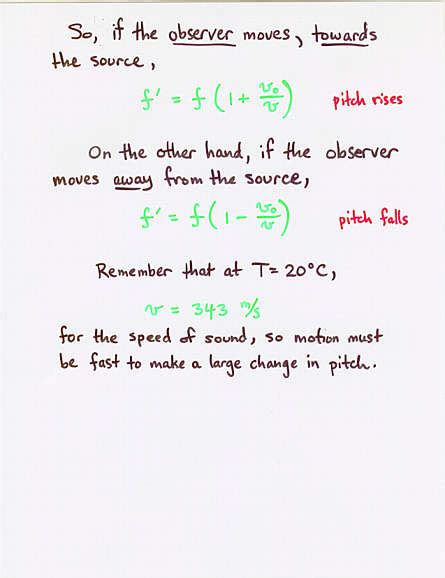 So, if the observer moves, towards
the source,
f' = f (1 + v₀/v) pitch rises
On the other hand, if the observer
moves away from the source,
f' = f (1 - v₀/v) pitch falls
Remember that at T= 20°C,
v = 343 m/s
for the speed of sound, so motion must
be fast to make a large change in pitch.